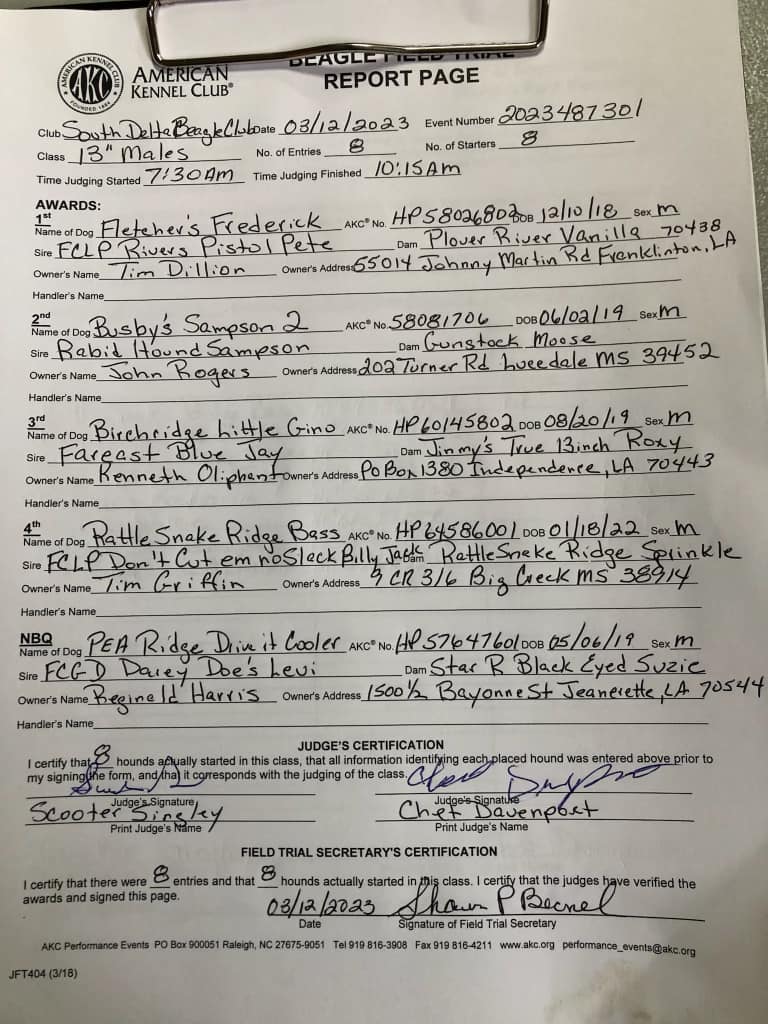 AMERICAN KENNEL CLUB
FOUNDED 1884
AKC
AMERICAN
KENNEL CLUB®
BEAGLE FIELD TRIAL
REPORT PAGE
Club South Delta Beagle Club Date 03/12/2023 Event Number 2023487301
Class 13" Males No. of Entries 8 No. of Starters 8
Time Judging Started 7:30AM Time Judging Finished 10:15AM
AWARDS:
1st
Name of Dog Fletcher's Frederick AKC® No. HP58026802 DOB 12/10/18 Sex M
Sire FCLP Rivers Pistol Pete Dam Plover River Vanilla 70438
Owner's Name Tim Dillion Owner's Address 55014 Johnny Martin Rd Franklinton, LA
Handler's Name
2nd
Name of Dog Busby's Sampson 2 AKC® No. 58081706 DOB 06/02/19 Sex M
Sire Rabid Hound Sampson Dam Gunstock Moose
Owner's Name John Rogers Owner's Address 202 Turner Rd Lucedale MS 39452
Handler's Name
3rd
Name of Dog Birchridge Little Gino AKC® No. HP60145802 DOB 08/20/19 Sex M
Sire Fareast Blue Jay Dam Jimmy's True 13inch Roxy
Owner's Name Kenneth Oliphant Owner's Address Po Box 1380 Independence, LA 70443
Handler's Name
4th
Name of Dog Rattle Snake Ridge Bass AKC® No. HP64586001 DOB 01/18/22 Sex M
Sire FCLP Don't Cut em no Slack Billy Jack Dam Rattle Snake Ridge Sprinkle
Owner's Name Tim Griffin Owner's Address 9 CR 316 Big Creek MS 38914
Handler's Name
NBQ
Name of Dog PEA Ridge Drive it Cooler AKC® No. HP57647601 DOB 05/06/19 Sex M
Sire FCGD Darey Doe's Levi Dam Star R Black Eyed Suzie
Owner's Name Reginald Harris Owner's Address 1500 1/2 Bayonne St Jeanerette, LA 70544
Handler's Name
JUDGE'S CERTIFICATION
I certify that 8 hounds actually started in this class, that all information identifying each placed hound was entered above prior to
my signing the form, and that it corresponds with the judging of the class.
Judge's Signature Judge's Signature
Scooter Singley Chet Davenport
Print Judge's Name Print Judge's Name
FIELD TRIAL SECRETARY'S CERTIFICATION
I certify that there were 8 entries and that 8 hounds actually started in this class. I certify that the judges have verified the
awards and signed this page.
03/12/2023 Shawn P Becnel
Date Signature of Field Trial Secretary
AKC Performance Events PO Box 900051 Raleigh, NC 27675-9051 Tel 919 816-3908 Fax 919 816-4211 www.akc.org performance_events@akc.org
JFT404 (3/18)